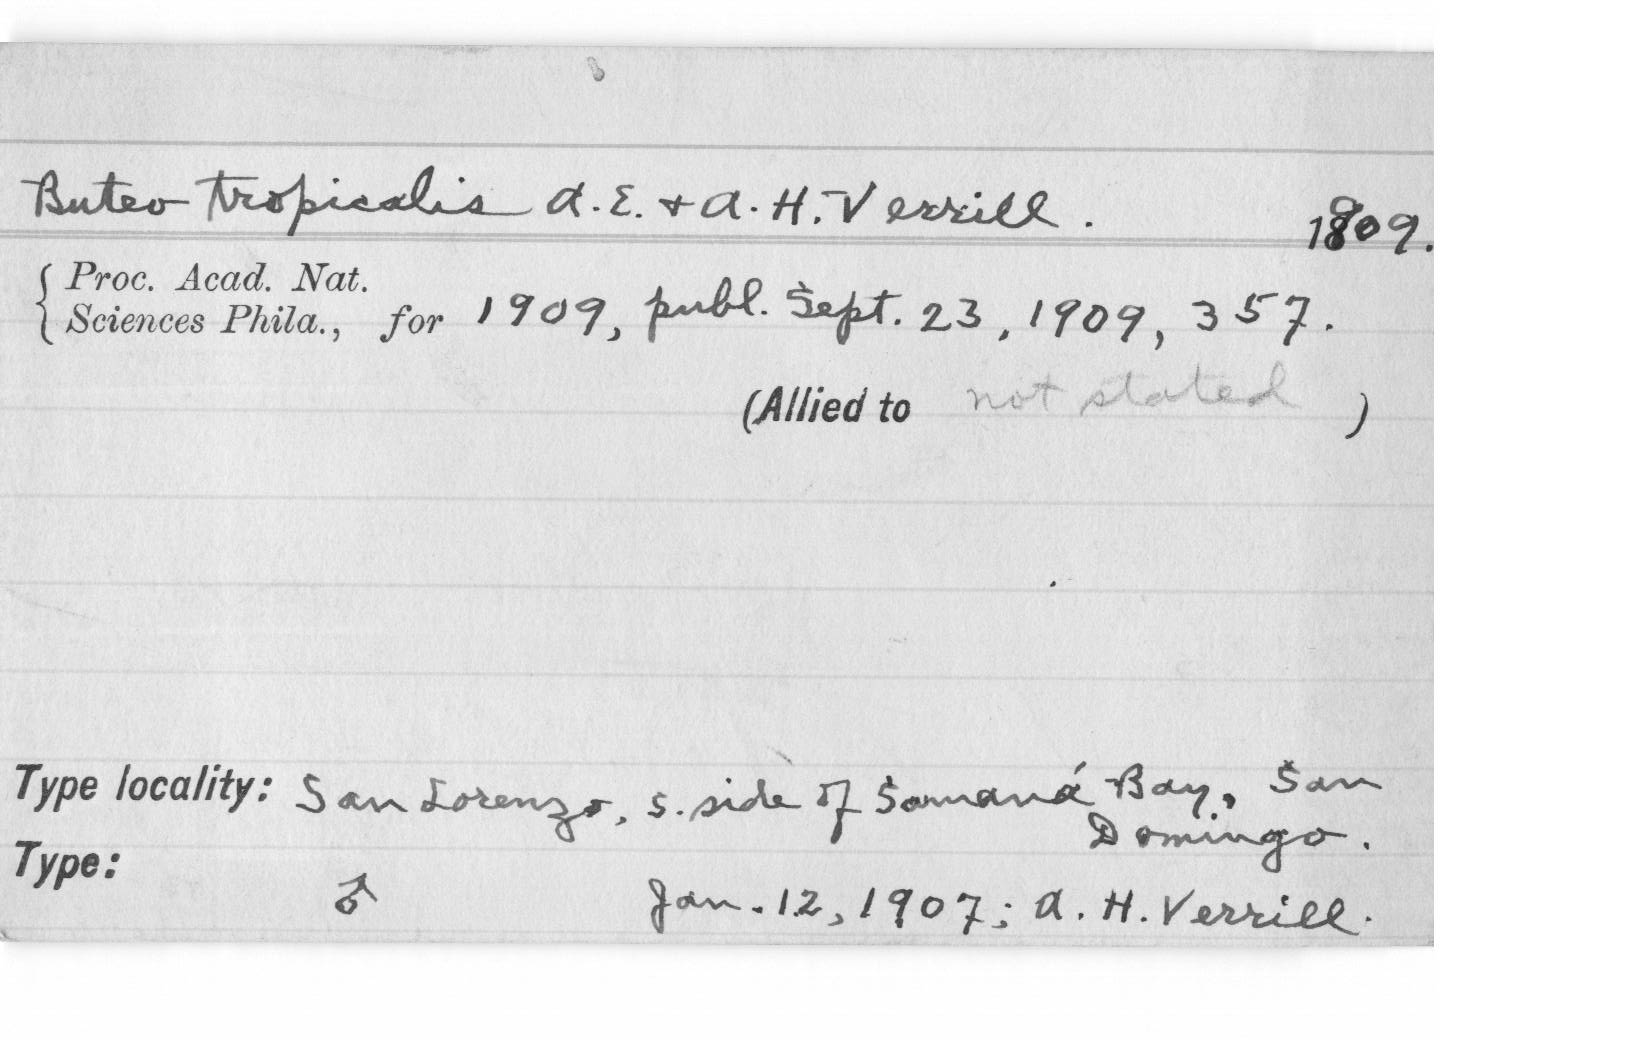 Buteo tropicalis A.E. + A.H. Verrill. 1909.
Proc. Acad. Nat.
Sciences Phila., for 1909, publ. Sept. 23, 1909, 357.
(Allied to not stated )
Type locality: San Lorenzo, s. side of Samaná Bay, San
Domingo.
Type:
♂ Jan. 12, 1907; A. H. Verrill.